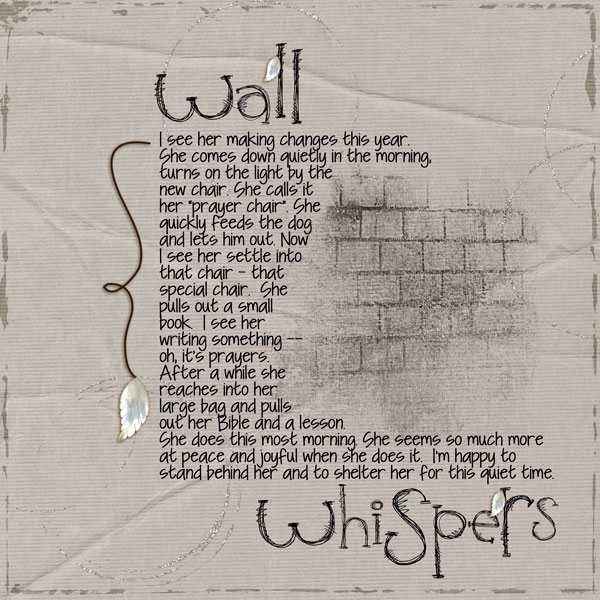 wall
I see her making changes this year.
She comes down quietly in the morning,
turns on the light by the
new chair. She calls it
her "prayer chair". She
quickly feeds the dog
and lets him out. Now
I see her settle into
that chair - that
special chair. She
pulls out a small
book. I see her
writing something --
oh, it's prayers.
After a while she
reaches into her
large bag and pulls
out her Bible and a lesson.
She does this most morning. She seems so much more
at peace and joyful when she does it. I'm happy to
stand behind her and to shelter her for this quiet time.
whiSpers